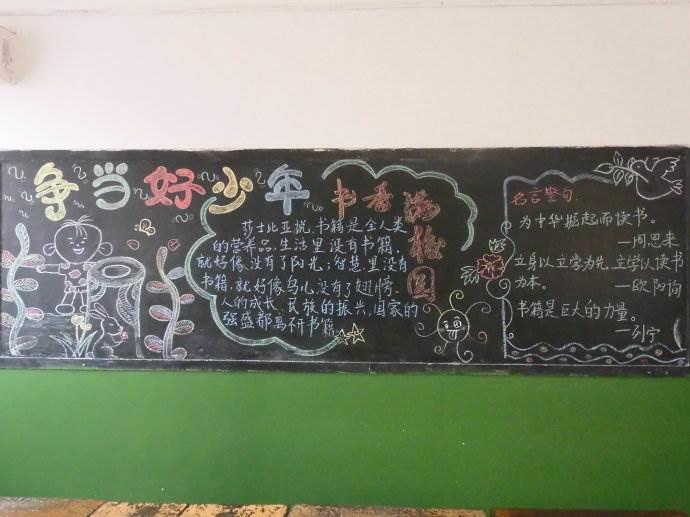 争当好少年
书香满校园
莎士比亚说,书籍是全人类
的营养品.生活里没有书籍,
就好像没有了阳光;智慧里没有
书籍,就好像鸟儿没有了翅膀.
人的成长、民族的振兴,国家的
强盛都离不开书籍.
名言警句.
为中华掘起而读书。
—周恩来
立身以立学为先,立学以读书
为本。
—欧阳询
书籍是巨大的力量。
—列宁